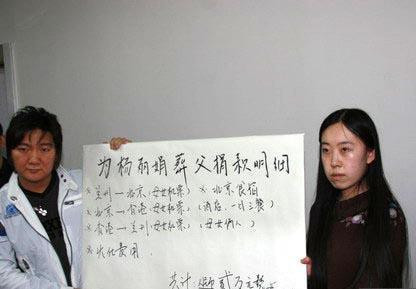 为杨丽娟葬父捐款明细
※兰州→北京(母女机票)※北京食宿
※北京→香港(母女机票,(酒店、一日三餐)
※香港→兰州(母女机票,(母女俩人)
※火化费用.
共计 贰万元整